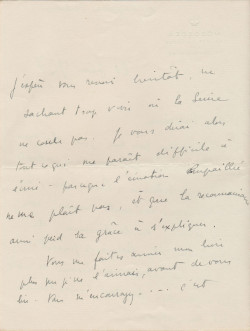 J'espère vous revoir bientôt, ne
sachant trop vous où la
ne coule pas. Je vous dirai alors
tout ce que me paraît difficile à
écrire - parceque l'émotion
ne me plaît pas, et que la reconnaissance
aussi perd sa grâce à s'expliquer.
Vous me faites aimer mon livre
plus que je ne l'aimais, avant de vous
lire. Vous m'encouragez - - - C'est